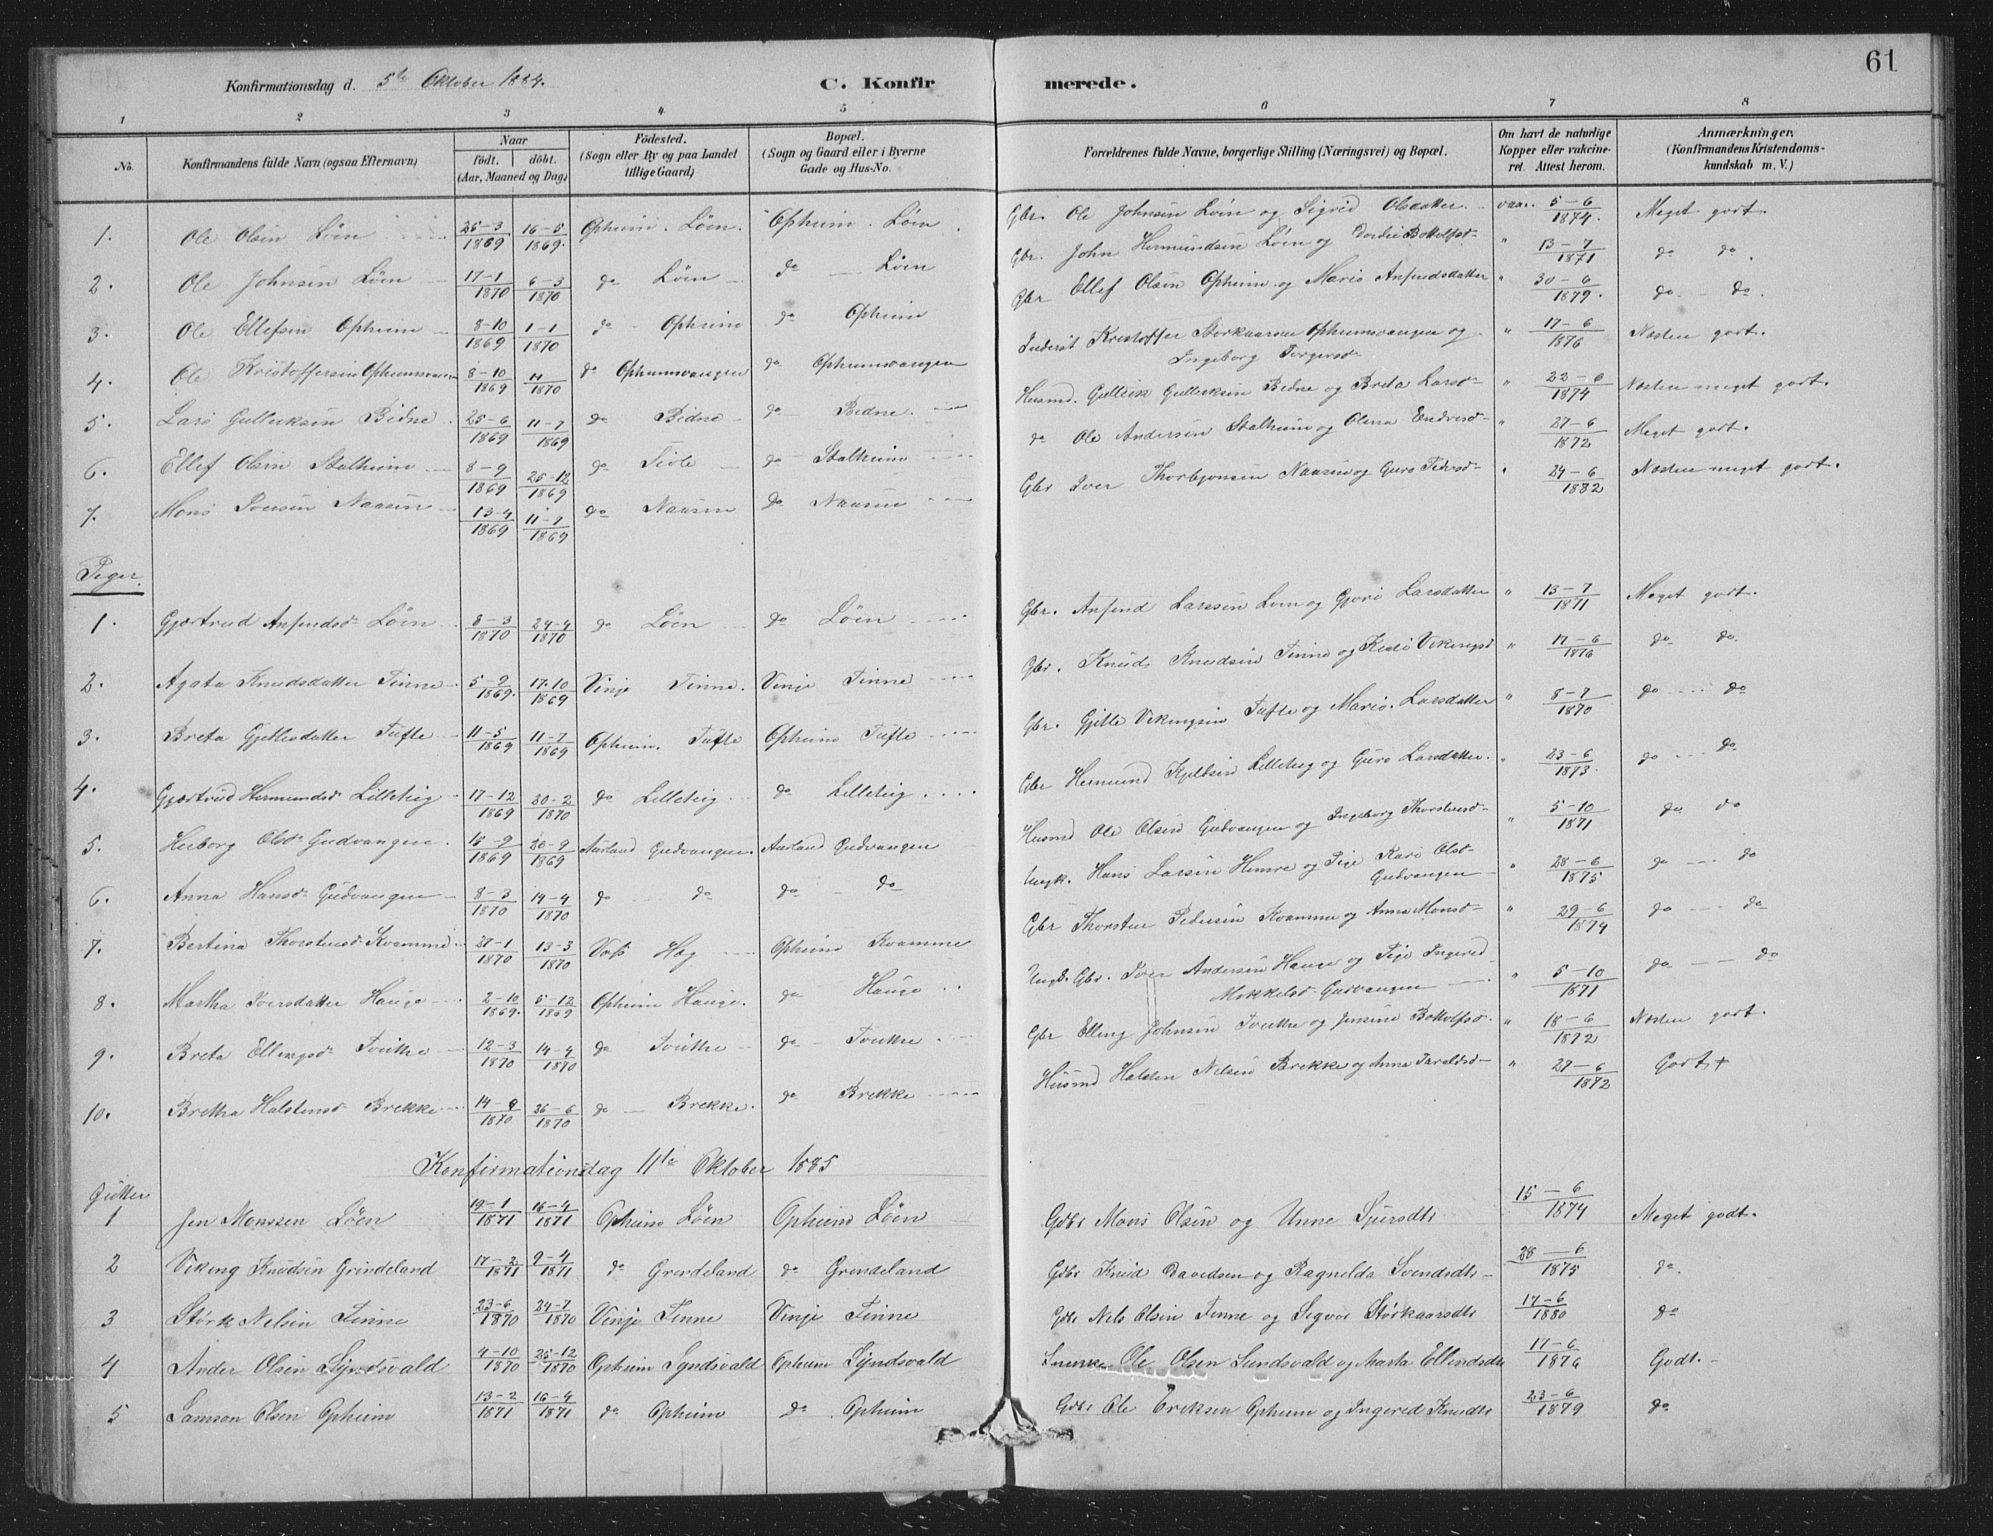 61
Konfirmationsdag d. 5te Oktober 1884. C. Konfirmerede.
1 2 3 4 5 6 7 8
No. Konfirmandens fulde Navn (ogsaa Efternavn) Naar födt. döbt. (Aar, Maaned og Dag) Födested. (Sogn eller By og paa Landet tillige Gaard) Bopæl. (Sogn og Gaard eller i Byerne Gade og Hus-No. Forældrenes fulde Navne, borgerlige Stilling (Næringsvei) og Bopæl. Om havt de naturlige Kopper eller vakcineret. Attest herom. Anmærkninger. (Konfirmandens Kristendomskundskab m. V.)
1. Ole Olsen Löen 25-3 1869 16-5 1869. Opheim. Löen. Opheim. Löen Gbr. Ole Johnsen Löen og Sigrid Olsdatter. vacc. 5-6 1874. Meget godt.
2. Ole Johnsen Löen 17-1 1870 6-3 1870 do Löen do Löen Gbr. John Hermundsen Löen og Dordei Bottolfsd. " 13-7 1871 do do.
3. Ole Ellefsen Opheim 8-10 1869 1-1 1870 do Opheim do Opheim Gbr Ellef Olsen Opheim og Mari Anfindsdatter " 30-6 1879. do do.
4. Ole Kristoffersen Opheimsvangen 8-10 1869 " 1870 do Opheimsvangen do Opheimsvangen Inderst Kristoffer Storkaarsen Opheimsvangen og Ingeborg Torgersd. " 17-6 1876 Næsten godt.
5. Lars Gulleiksen Bidne 25-6 1869 11-7 1869 do Bidne do Bidne. Husmd. Gulleik Gulleiksen Bidne og Breta Larsd. " 22-6 1874 Næsten meget godt.
6. Ellef Olsen Stalheim 8-9 1869 26-12 1869 do do Stalheim do Ole Andersen Stalheim og Olena Endresd. " 27-6 1872 Meget godt.
7. Mons Iversen Naasen 13-4 1869 11-9 1869 do Naasen do Naasen Gbr Iver Thorbjønsen Naasen og Guro " 24-6 1882 Næsten meget godt.
Piger.
1. Gjertrud Anfindsd. Löen 8-3 1870 24-4 1870 do Löen do Löen Gbr. Anfind Larssen Loen og Gjøri Larsdatter " 13-7 1871 Meget godt.
2. Agata Knudsdatter Tinne 5-9 1869. 17-10 1869 Vinje Tinne. Vinje Tinne Gbr. Knud Knudsen Tinne og Vikingsd " 17-6 1876 do do.
3. Breta Gjettlesdatter Tufte 11-5 1869 11-7 1869 Opheim. Tufte Opheim Tufte Gbr. Gjitle Vikingsen Tufte og Mari. Larsdatter " 8-7 1870 do do
4. Gjertrud Hermundsd. Lilleteig 17-12 1869 20-2 1870 do Lilleteig do Lilleteig Gbr Hermund Kjeltsen Lilleteig og Guro Larsdatter. " 23-6 1873. do do
5. Herborg Olsd. Gudvangen. 15-9 1869 20-9 1869 Aurland Gudvangen. Aurland Gudvangen Husmd Ole Olsen Gudvangen og Ingeborg Thorstensd. " 5-10 1871 do do
6. Anna Hansd. Gudvangen 8-3 1870 14-4 1870 do do do do Ungk. Hans Larsen Hemre og Pige Kari Olsd. Gudvangen " 28-6 1875 do do
7. Bertina Thorstensd. Kvamme 27-1 1870 13-3 1870 Voss Hag Opheim Kvamme Gbr Thorsten Pedersen Kvamme og Anna Monsd. " 29-6 1874 do do
8. Martha Iversdatter Hauge 2-10 1869. 5-12 1869 Opheim Hauge. do Hauge Ungk. Gbr. Iver Andersen Hauge og Pige Ingerid Mikkelsd Gudvangen " 5-10 1871 do do
9. Breta Ellingsd. Tvitthe 12-3 1870 14-4 1870 do Tvitthe do Tvitthe Gbr Elling Johnsen Tvitthe og Jensine Bottolfsd. " 18-6 1872 Næsten godt.
10. Bretha Halstensd Brekke 14-9 1870 26-6 1870 do Brekke. do Brekke Husmd Halsten Nelsen Brekke og Anna " 27-6 1872 Godt +
Konfirmationsdag 11te Oktober 1885
Gutter
1 Jen Monssen Löen 19-1 1871 16-4 1871 Opheim Löen Opheim Löen Gdbr Mons Olsen og Unne Sjursdtr 15-6 1874 Meget godt.
2 Viking Knudsen Grindeland 17-2 1871 9-4 1871 do Grindeland do Grindeland Gdbr Knud Davidsen og Ragnilda Svendsdtr 28-6 1875 do.
3 Størk Nelsen Tinne 23-6 1870 24-7 1870 Vinje Tinne Vinje Tinne Gdbr Nels Olsen Tinne og Sigvor Størkaarsdtr 17-6 1880 do
4 Ander Olsen Syndsvald 4-10 1870 26-12 1870 Opheim Syndsvald Opheim Syndsvald Ole Olsen Sundsvald og Marta Ellendsdtr 17-6 1876 Godt.
5 Samson Olsen Opheim 13-2 1871 16-4 1871 do Opheim do Opheim Gdbr Ole Eriksen Opheim og Ingerid Knudtr 23-6 1879 do